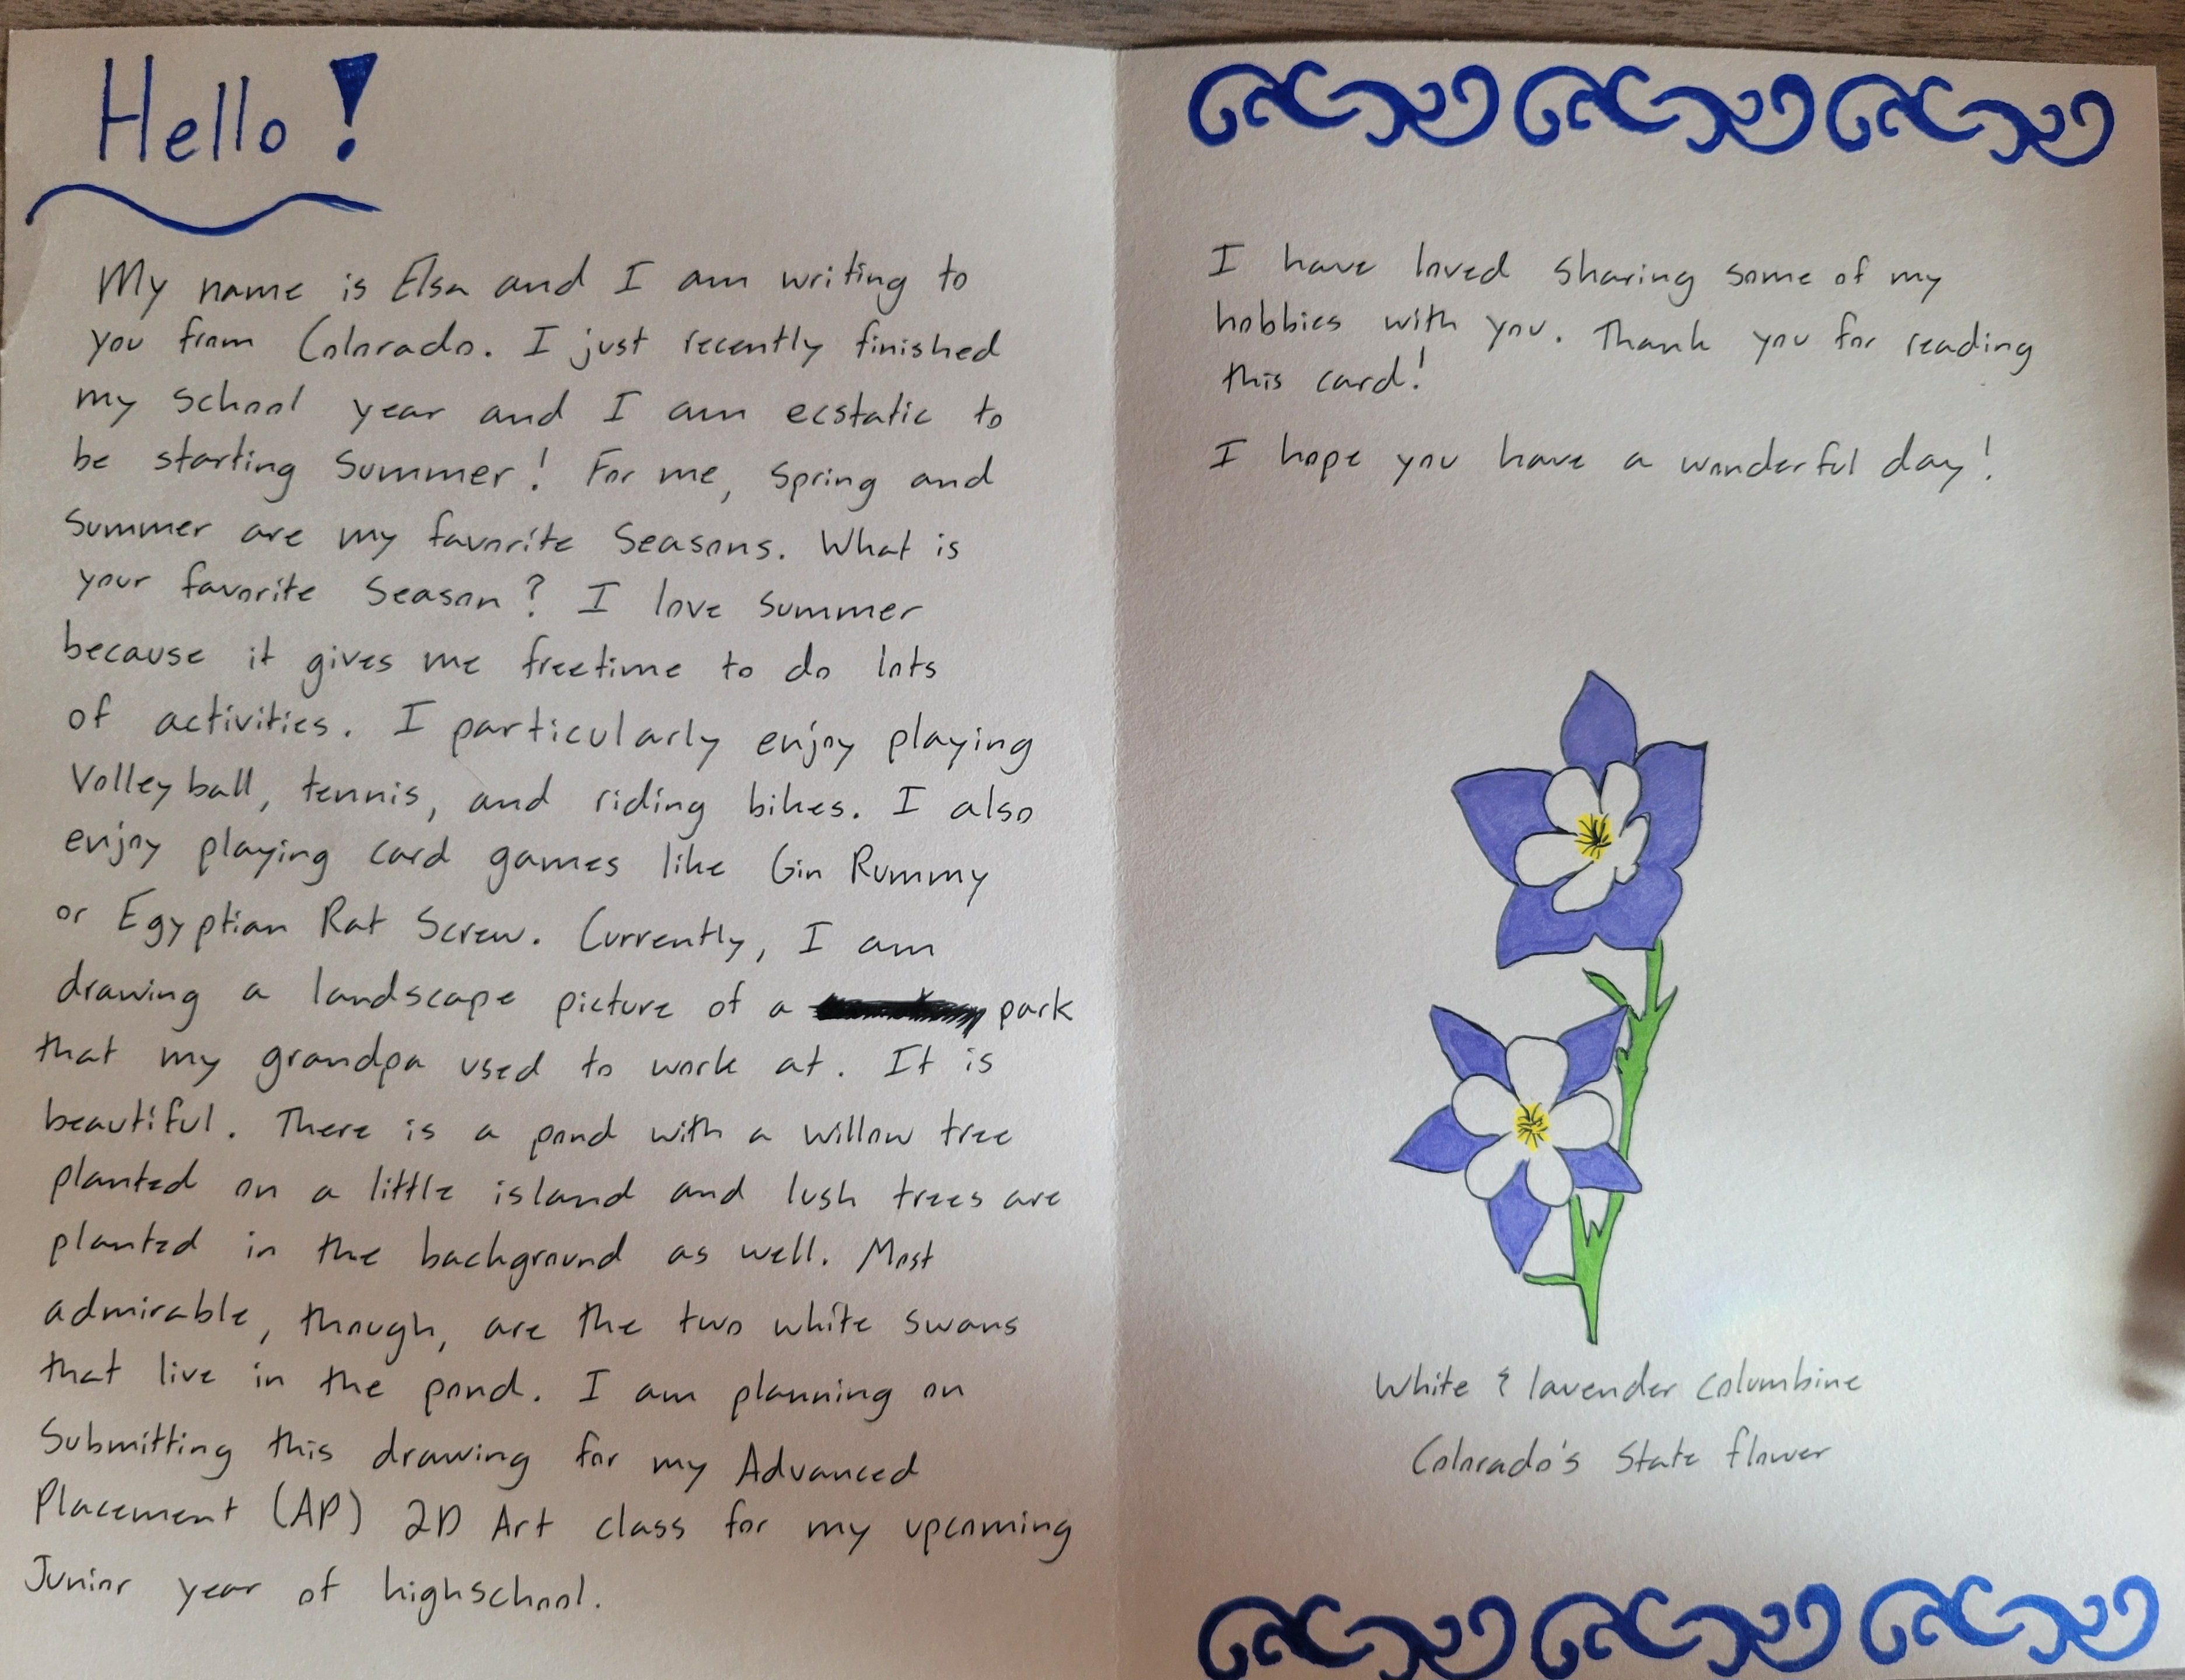 Hello!
My name is Elsa and I am writing to
you from Colorado. I just recently finished
my school year and I am ecstatic to
be starting Summer! For me, Spring and
Summer are my favorite Seasons. What is
your favorite Season? I love summer
because it gives me freetime to do lots
of activities. I particularly enjoy playing
Volleyball, tennis, and riding bikes. I also
enjoy playing card games like Gin Rummy
or Egyptian Rat Screw. Currently, I am
drawing a landscape picture of a park
that my grandpa used to work at. It is
beautiful. There is a pond with a willow tree
planted on a little island and lush trees are
planted in the background as well. Most
admirable, though, are the two white swans
that live in the pond. I am planning on
Submitting this drawing for my Advanced
Placement (AP) 2D Art class for my upcoming
Junior year of highschool.
I have loved sharing some of my
hobbies with you. Thank you for reading
this card!
I hope you have a wonderful day!
White & lavender columbine
Colorado's State flower